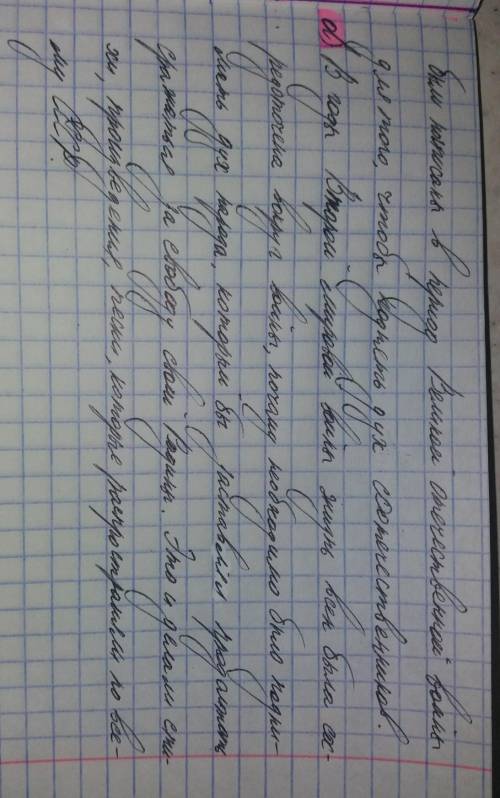 были написаны в период Великой отечественной войны
для того, чтобы поднять дух соотечественников.
а) В годы Второй мировой войны жизнь всех была со-
средоточена вокруг войны, почему необходимо было подни-
мать дух народа, который бы заставлял продолжать
сражаться за свободу своей Родины. Это и делали сти-
хи, произведения, песни, которые распространяли по все-
му СССР.